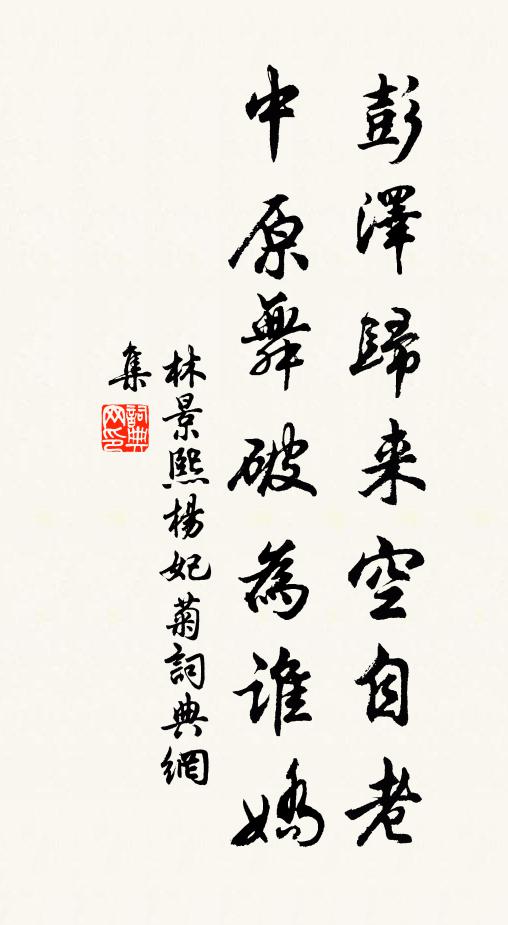 彭澤歸来空自老
中原舞破為誰嬌
林景熙楊妃菊詞典網
集
詞典
网印